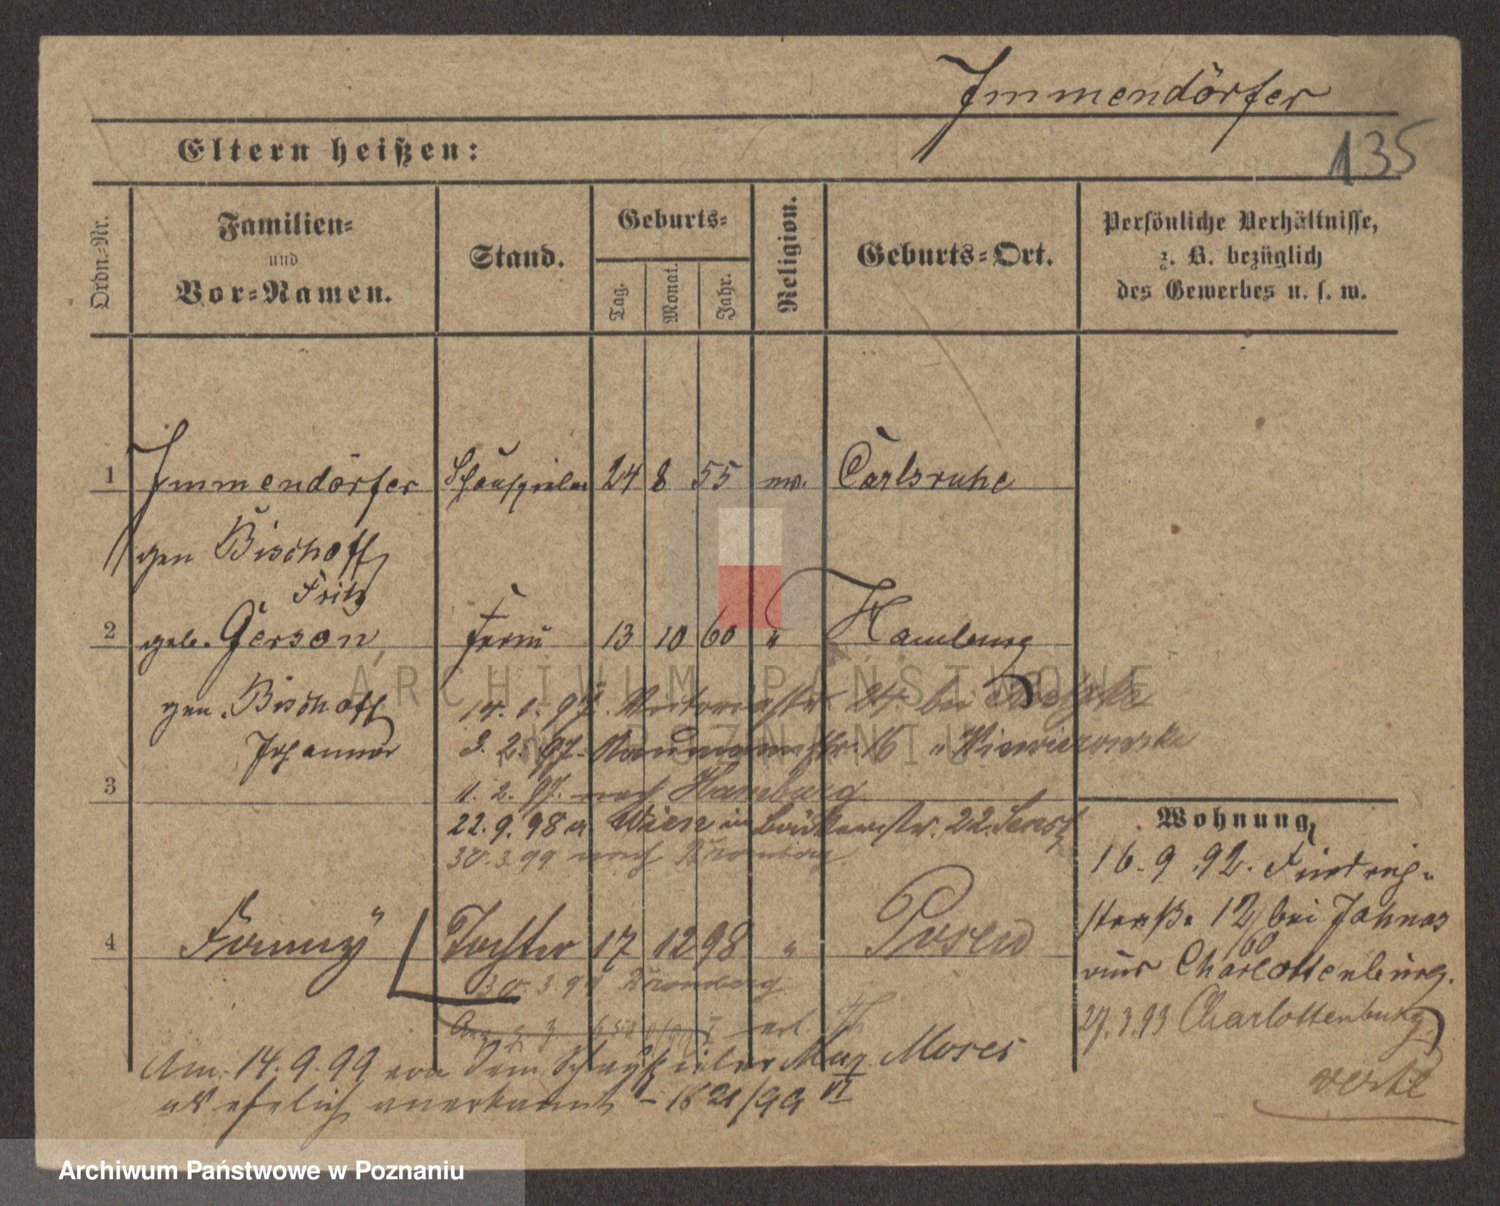 Immendörfer
135
Eltern heißen:
Ordn.-Nr.
Familien-
und
Vor-Namen.
Stand.
Geburts-
Tag.
Monat.
Jahr.
Religion.
Geburts-Ort.
Persönliche Verhältnisse,
z. B. bezüglich
des Gewerbes u. s. w.
1 Immendörfer Schauspieler 24 8 55 Carlsruhe
gen Bischoff
Fritz
2 geb. Gerson 13 10 60 " Hamburg
gen. Bischoff
Johanna
14. 1. 97. Victoriastr 24 bei
3. 2. 97. Naumannstr. 16 "
3
1. 2. 97. nach Hamburg
22. 9. 98 a. Wien in Bäckerstr. 22.
30. 3. 99 nach Bromberg
4 Fanny Tochter 17 12 98 " Posen
30. 3. 99 Bromberg
Am 14. 9. 99 von dem Schauspieler Max Moses
als ehelich anerkannt - 1621/99 VI
Wohnung
16. 9. 92. Friedrich-
straße 12 bei
aus Charlottenburg.
27. 3. 93 Charlottenburg
verte
ARCHIWUM PAŃSTWOWE
W POZNANIU
Archiwum Państwowe w Poznaniu